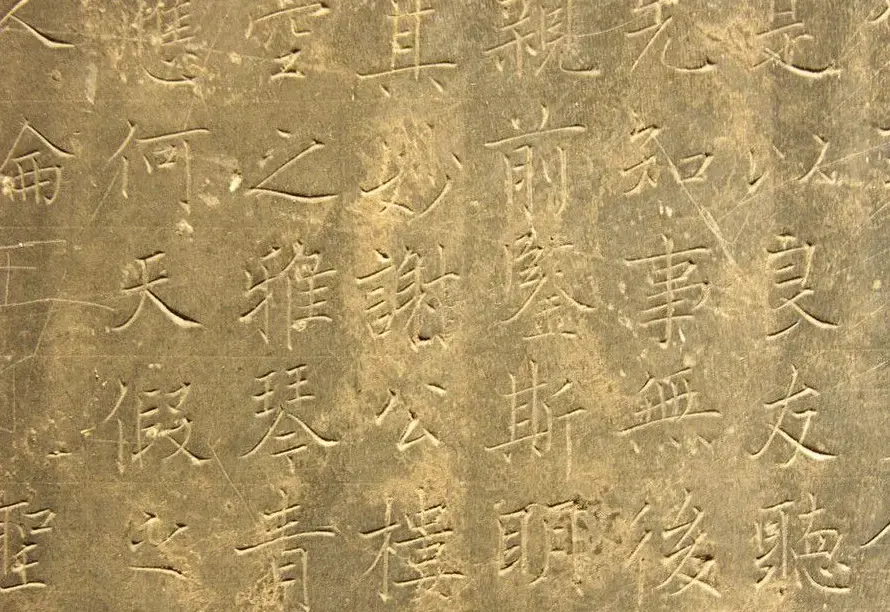 是以良友聽
先知事無後
親前鑒斯眀
其妙謝公樓
空之雅琴青
應何天假之
聖